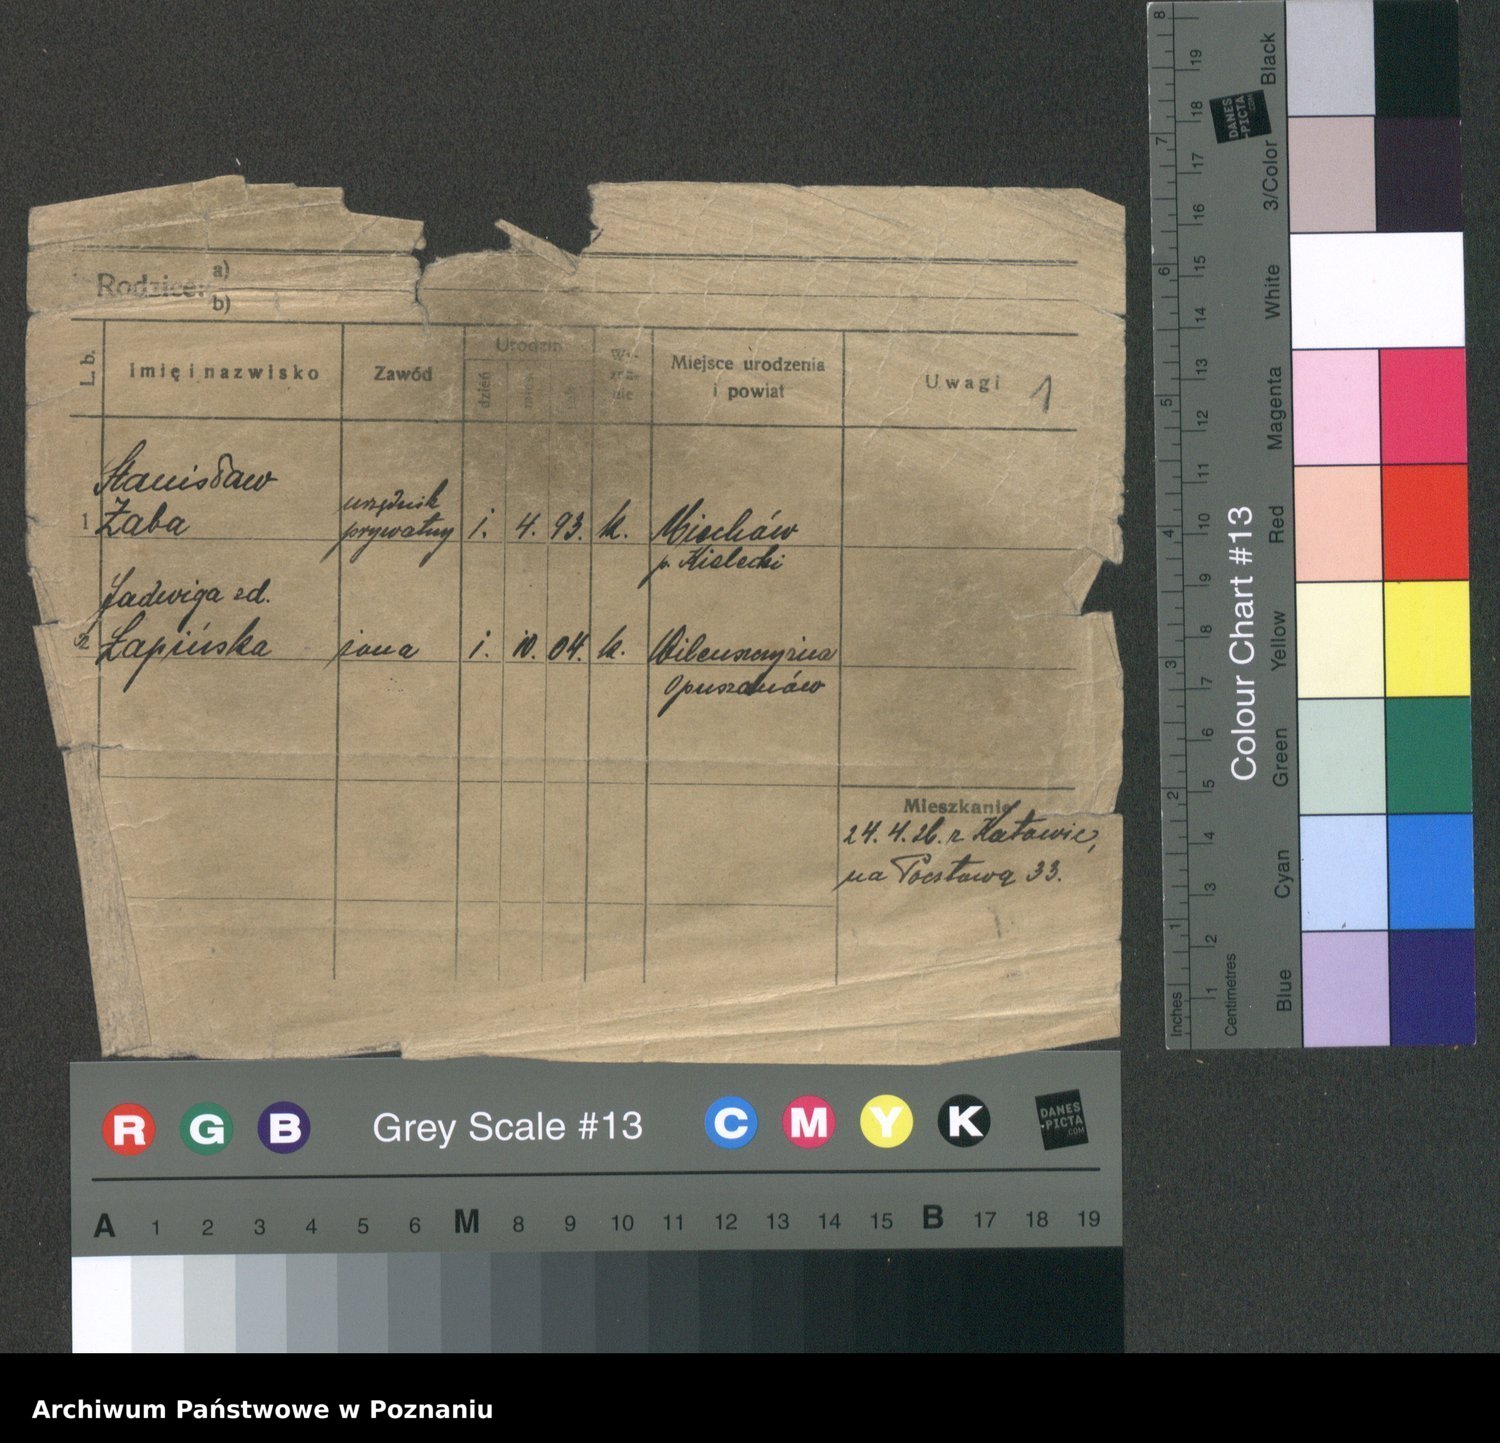 Rodzice: a)
b)
L. b.
imię i nazwisko
Zawód
Urodzin
dzień
Wy-
zna-
nie
Miejsce urodzenia
i powiat
Uwagi
1
Stanisław
1 Żaba
urzędnik
prywatny
1. 4. 93. k. Miechów
p. Kielecki
Jadwiga zd.
2 Łapińska żona 1. 10. 04. k. Wilenszczyzna
Mieszkanie
24. 4. 26. z Katowic,
na Pocztową 33.
Inches
1 2 3 4 5 6 7 8
Centimetres
1 2 3 4 5 6 7 8 9 10 11 12 13 14 15 16 17 18 19
Colour Chart #13
Blue
Cyan
Green
Yellow
Red
Magenta
White
3/Color
Black
DANES
-PICTA
.COM
R G B Grey Scale #13 C M Y K
DANES
-PICTA
.COM
A 1 2 3 4 5 6 M 8 9 10 11 12 13 14 15 B 17 18 19
Archiwum Państwowe w Poznaniu